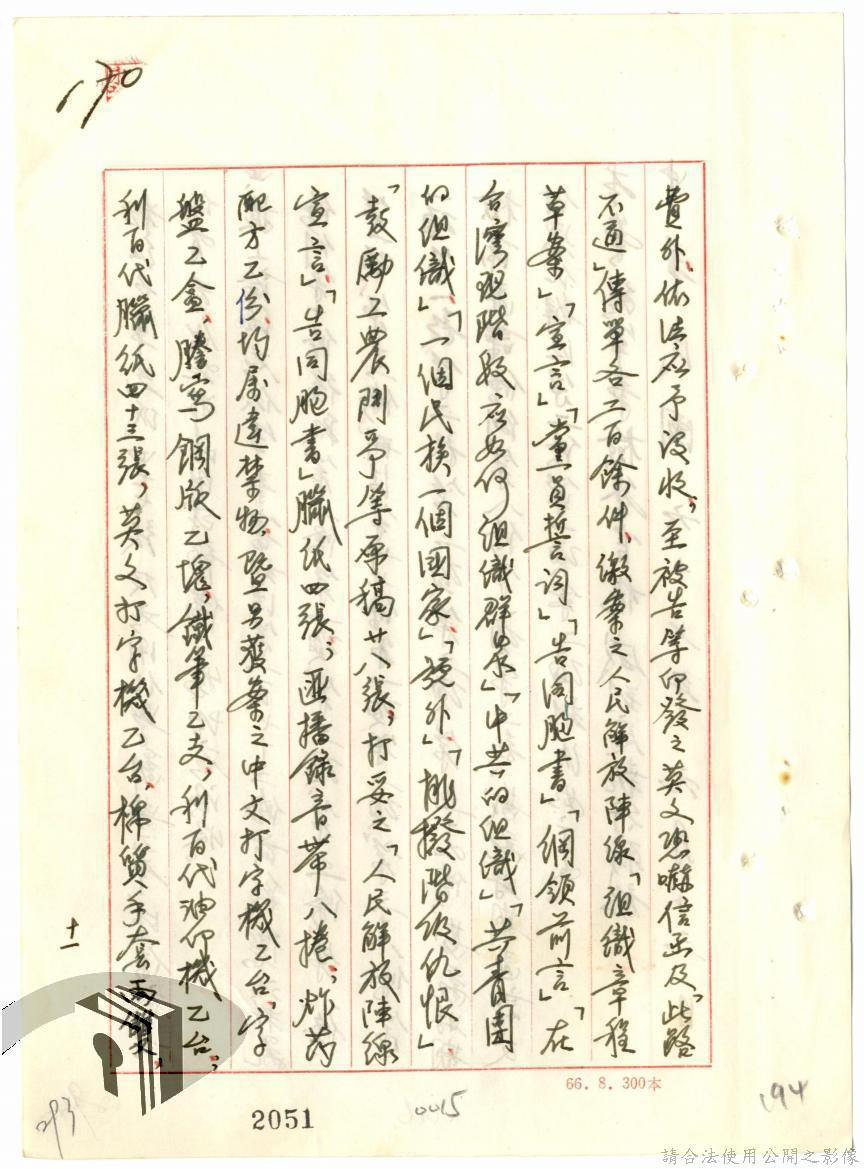 170
費外、依法應予沒收；至被告等印發之英文恐嚇信函及「此路
不通」傳單各二百餘件、繳案之人民解放陣線「組織章程
草案」「宣言」「黨員誓詞」「告同胞書」「綱領前言」「在
台灣現階段應如何組織群眾」「中共的組織」「共青團
的組織」、「一個民族一個國家」、「號外」、「挑撥階級仇恨」、
「鼓勵工農鬥爭等原稿廿八張，打妥之「人民解放陣線
宣言」、「告同胞書」臘紙四張；匪播錄音帶八捲，炸药
配方乙份、均屬違禁物、暨另獲案之中文打字機乙台、字
盤乙盒、謄寫鋼版乙塊，鐵筆乙支，利百代油印機、乙台，
利百代臘紙四十三張，英文打字機乙台、棉質手套兩雙，
十一
66.8.300本
2051
0015
194
293
請合法使用公開之影像